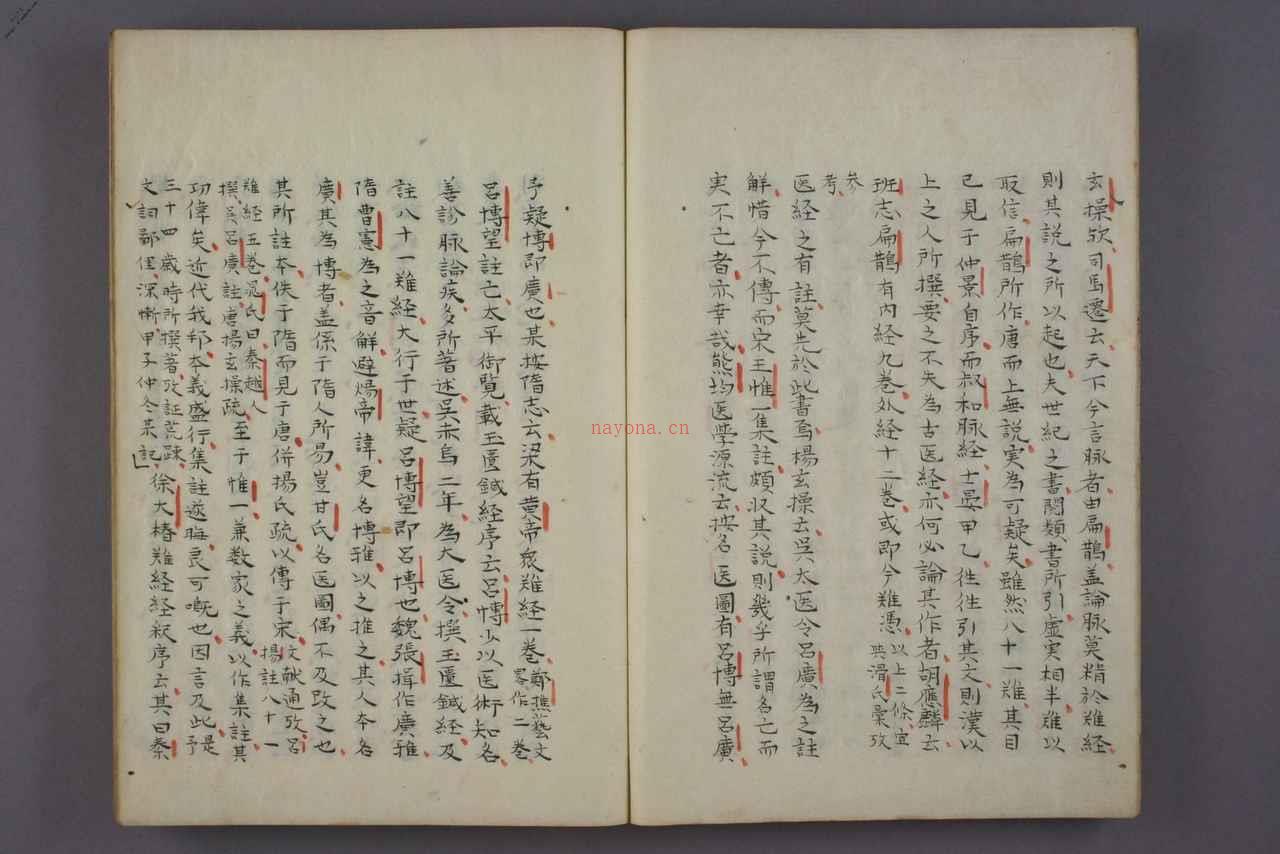 玄操欤司馬遷云天下今言脉者由扁鵲蓋論脉莫精於难経
則其說之所以起也夫世紀之書閲類書所引虚实相半难以
取信扁鵲所作唐而上無説实為可疑矣雖然八十一难其目
已見于仲景自序而叔和脉経士晏甲乙徃徃引其文則漢以
上之人所撰要之不失為古医経亦何必論其作者胡應麟云
班志扁鵲有内経九卷外経十二卷或即今难憑以上二條宜
與滑氏彙攷
参
考
医経之有註莫先於此書焉楊玄操云吳太医令呂廣為之註
解惜今不傳而宋王惟一集註頗収其説則幾乎所謂名亡而
実不亡者亦幸哉熊均医學源流云按名医圖有呂博無呂廣
予疑博即廣也某按隋志云梁有黄帝衆难経一卷鄭樵藝文
畧作二卷
呂博望註亡太平御覧載玉匱鍼経序云呂博少以医術知名
善診脉論疾多所著述吳赤烏二年為太医令撰玉匱鍼経及
註八十一难経大行于世疑呂博望即呂博也魏張揖作廣雅
隋曹憲為之音解避煬帝諱更名博雅以之推之其人本名
廣其為博者盖係于隋人所易豈甘氏名医圖偶不及改之也
其所註本佚于隋而見于唐併揚氏疏以傳于宋文献通攷呂
楊註八十一
难経五卷晁氏曰秦越人
撰吳呂廣註唐揚玄操疏至于惟一兼数家之義以作集註其
功偉矣近代我邦本義盛行集註遂晦良可嘅也因言及此是予
三十四歲時所撰著攷証荒疎
文詞鄙俚深慚甲子仲冬某記徐大椿难経経釈序云其曰秦
nayona.cn